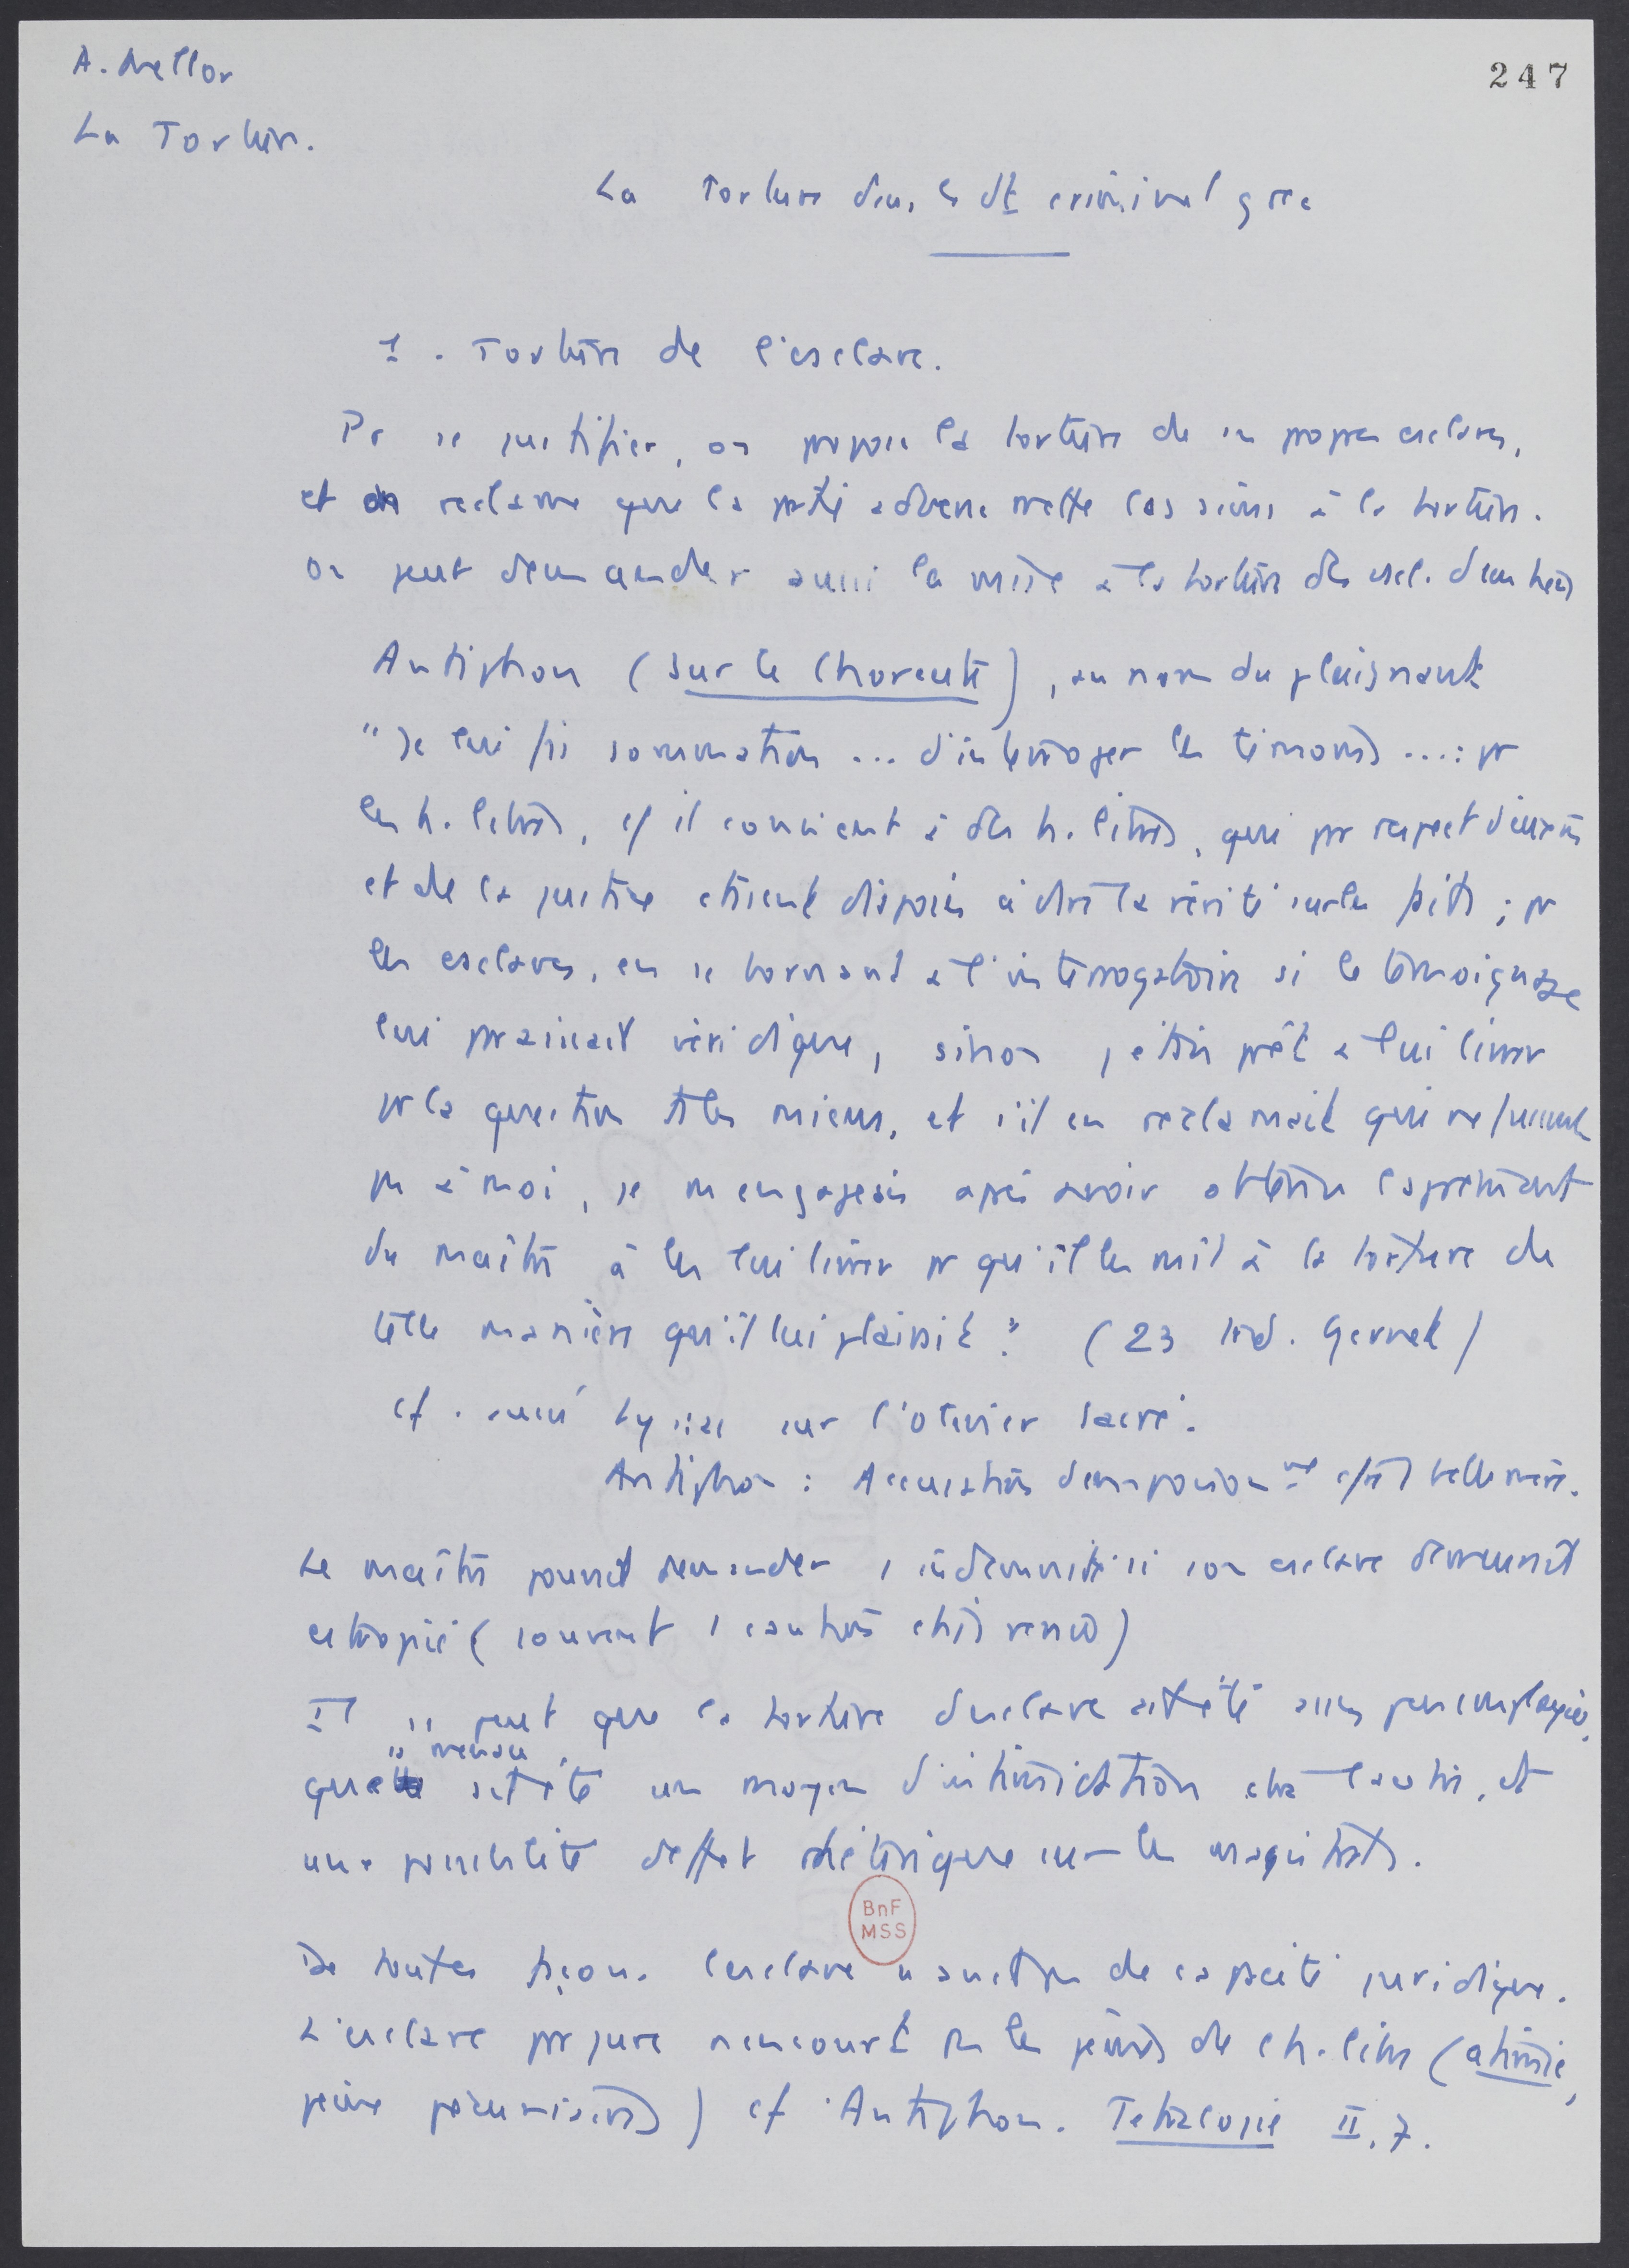 A. Mellor
247
La Torture.
La Torture dans le dt criminel grec
1. Torture de l'esclave.
Pr se justifier, on propose la torture de ses propres esclaves,
et on reclame que la partie adverse mette les siens à la torture.
On peut demander aussi la mise à la torture des escl. d'un tiers
Antiphon (Sur le Choreute), au nom du plaignant
"Je lui fis sommation ... d'interroger les témoins ... : pr
les h. libres, c/ il convient à des h. libres, qui par respect d'eux ms
et de la justice étaient disposés à dire la vérité sur les faits ; pr
les esclaves, en se bornant à l'interrogatoire si le témoignage
lui paraissait véridique, sinon j'étais prêt à lui livrer
pr la question ts les miens, et s'il en réclamait qui ne fussent
pas à moi, je m'engageais après avoir obtenu l'assentiment
du maître à les lui livrer pr qu'il les mît à la torture de
telle manière qu'il lui plairait." (23 trad. Gernet)
cf. aussi Lysias sur l'olivier sacré.
Antiphon : Accusation d'empoisonnt c/ la belle mère.
Le maître pouvait demander 1 indemnité si son esclave devenait
estropié (souvent 1 caution était versée)
Il se peut que la torture d'esclave ait été assez peu employée,
que sa menace ait été un moyen d'intimidation chez l'autre, et
une possibilité d'effet rhétorique sur les magistrats.
BnF
MSS
De toutes façons l'esclave n'avait pas de capacité juridique.
L'esclave parjure n'encourt pas les peines de l'h. libre (atimie,
peine pécuniaire) cf Antiphon. Tetralogie II, 7.